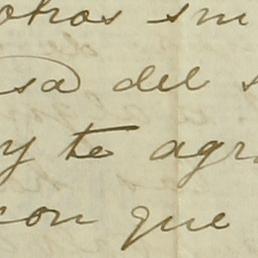 otros sin
sa del s
y te agr
con que